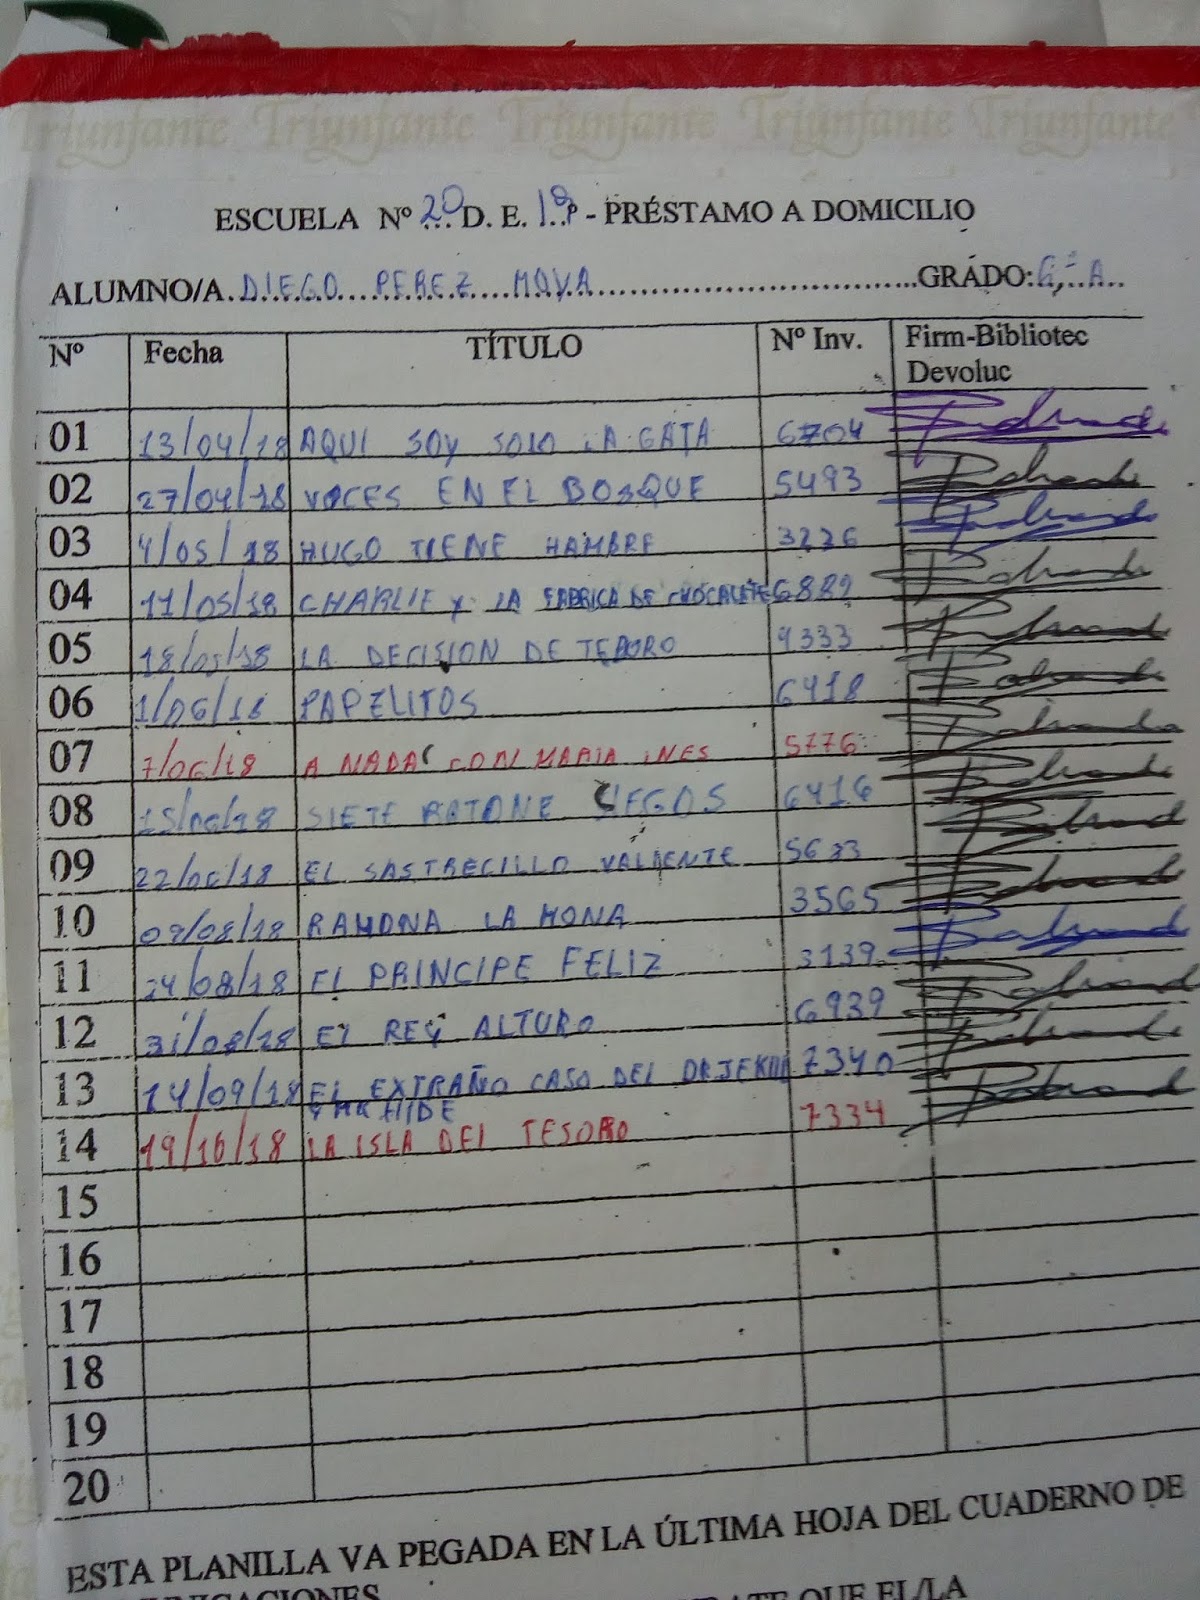 Triunfante Triunfante Triunfante Triunfante Triunfante
ESCUELA Nº 20 D. E. 1º - PRÉSTAMO A DOMICILIO
ALUMNO/A. DIEGO PEREZ MOYA GRADO: 6º A
Nº Fecha TÍTULO Nº Inv. Firm-Bibliotec
Devoluc
01 13/04/18 AQUI SOY SOLO LA GATA 6704
02 27/04/18 VOCES EN EL BOSQUE 5493
03 4/05/18 HUGO TIENE HAMBRE
04 11/05/18 CHARLIE Y LA FABRICA DE CHOCALETE 6889
05 18/05/18 LA DECISION DE TEDORO 4333
06 1/06/18 PAPELITOS 6418
07 7/06/18 A NADAR CON MARIA INES 5776
08 15/06/18 SIETE RATONE CIEGOS 6416
09 22/06/18 EL SASTRECILLO VALIENTE
10 RAMONA LA MONA 3565
11 24/08/18 El PRINCIPE FELIZ 3139
12 31/08/18 El REY ALTURO 6939
13 14/09/18 EL EXTRAÑO CASO DEL DR JEKILL 7340
Y MR HIDE
14 19/10/18 LA ISLA DEl TESORO 7334
15
16
17
18
19
20
ESTA PLANILLA VA PEGADA EN LA ÚLTIMA HOJA DEL CUADERNO DE
QUE EL/LA